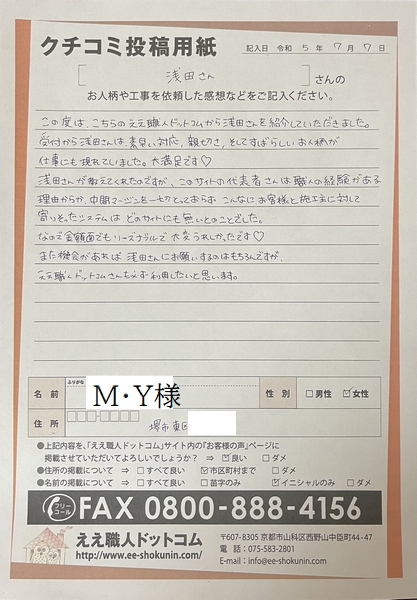 クチコミ投稿用紙
記入日 令和 5年 7月 7日
[浅田さん]さんの
お人柄や工事を依頼した感想などをご記入ください。
この度は、こちらのええ職人ドットコムから浅田さんを紹介していただきました。
受付から浅田さんは素早い対応、親切さ、そしてすばらしいお人柄が
仕事にも現れていました。大満足です♡
浅田さんが教えてくれたのですが、このサイトの代表者さんは職人の経験がある
理由からか、中間マージンも一切とっておらず こんなにお客様と施工主に対して
寄りそったシステムは どのサイトにも無いとのことでした。
なので金額面でもリーズナブルで大変うれしかったです♡
また機会があれば 浅田さんにお願いするのはもちろんですが、
ええ職人ドットコムさんも必ず利用したいと思います。
ふりがな
名前 M・Y様 性別 □男性 ☑女性
住所 堺市東区
●上記内容を、「ええ職人ドットコム」サイト内の『お客様の声』ページに
掲載させていただいてよろしいでしょうか? ⇒ ☑良い □ダメ
●住所の掲載について ⇒ □すべて良い ☑市区町村まで □ダメ
●名前の掲載について ⇒ □すべて良い □苗字のみ ☑イニシャルのみ □ダメ
フリーコール FAX 0800-888-4156
ええ職人ドットコム
http://www.ee-shokunin.com/
〒607-8305 京都市山科区西野山中臣町44-47
電話:075-583-2801
E-mail:info@ee-shokunin.com